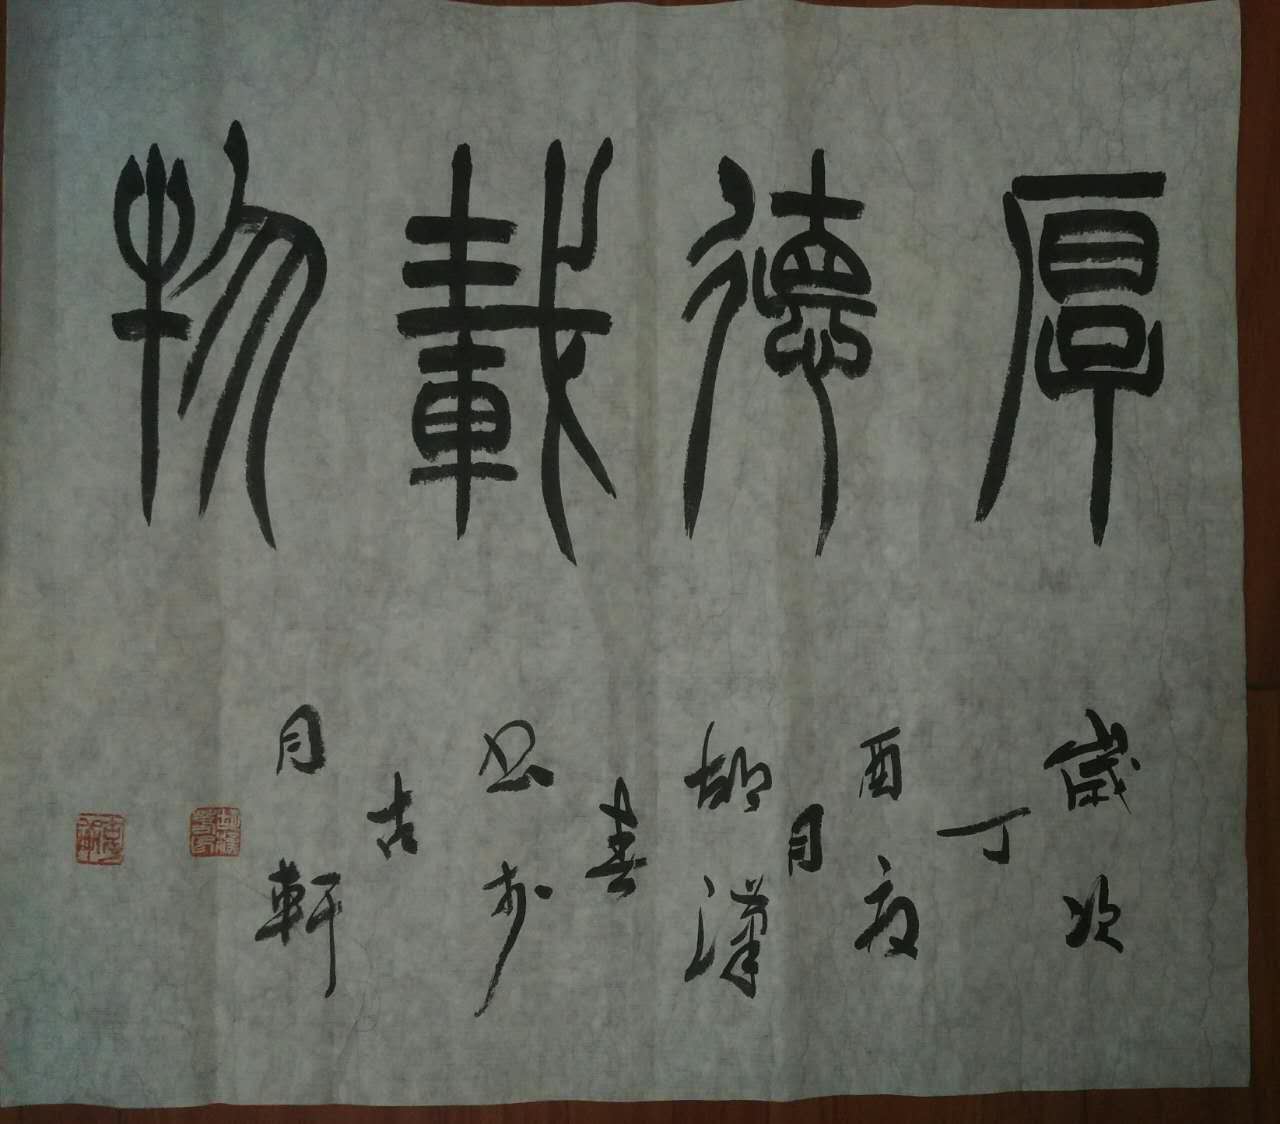 厚德載物
歲次
丁
酉夜
月
胡漢
春
書於
古
月軒